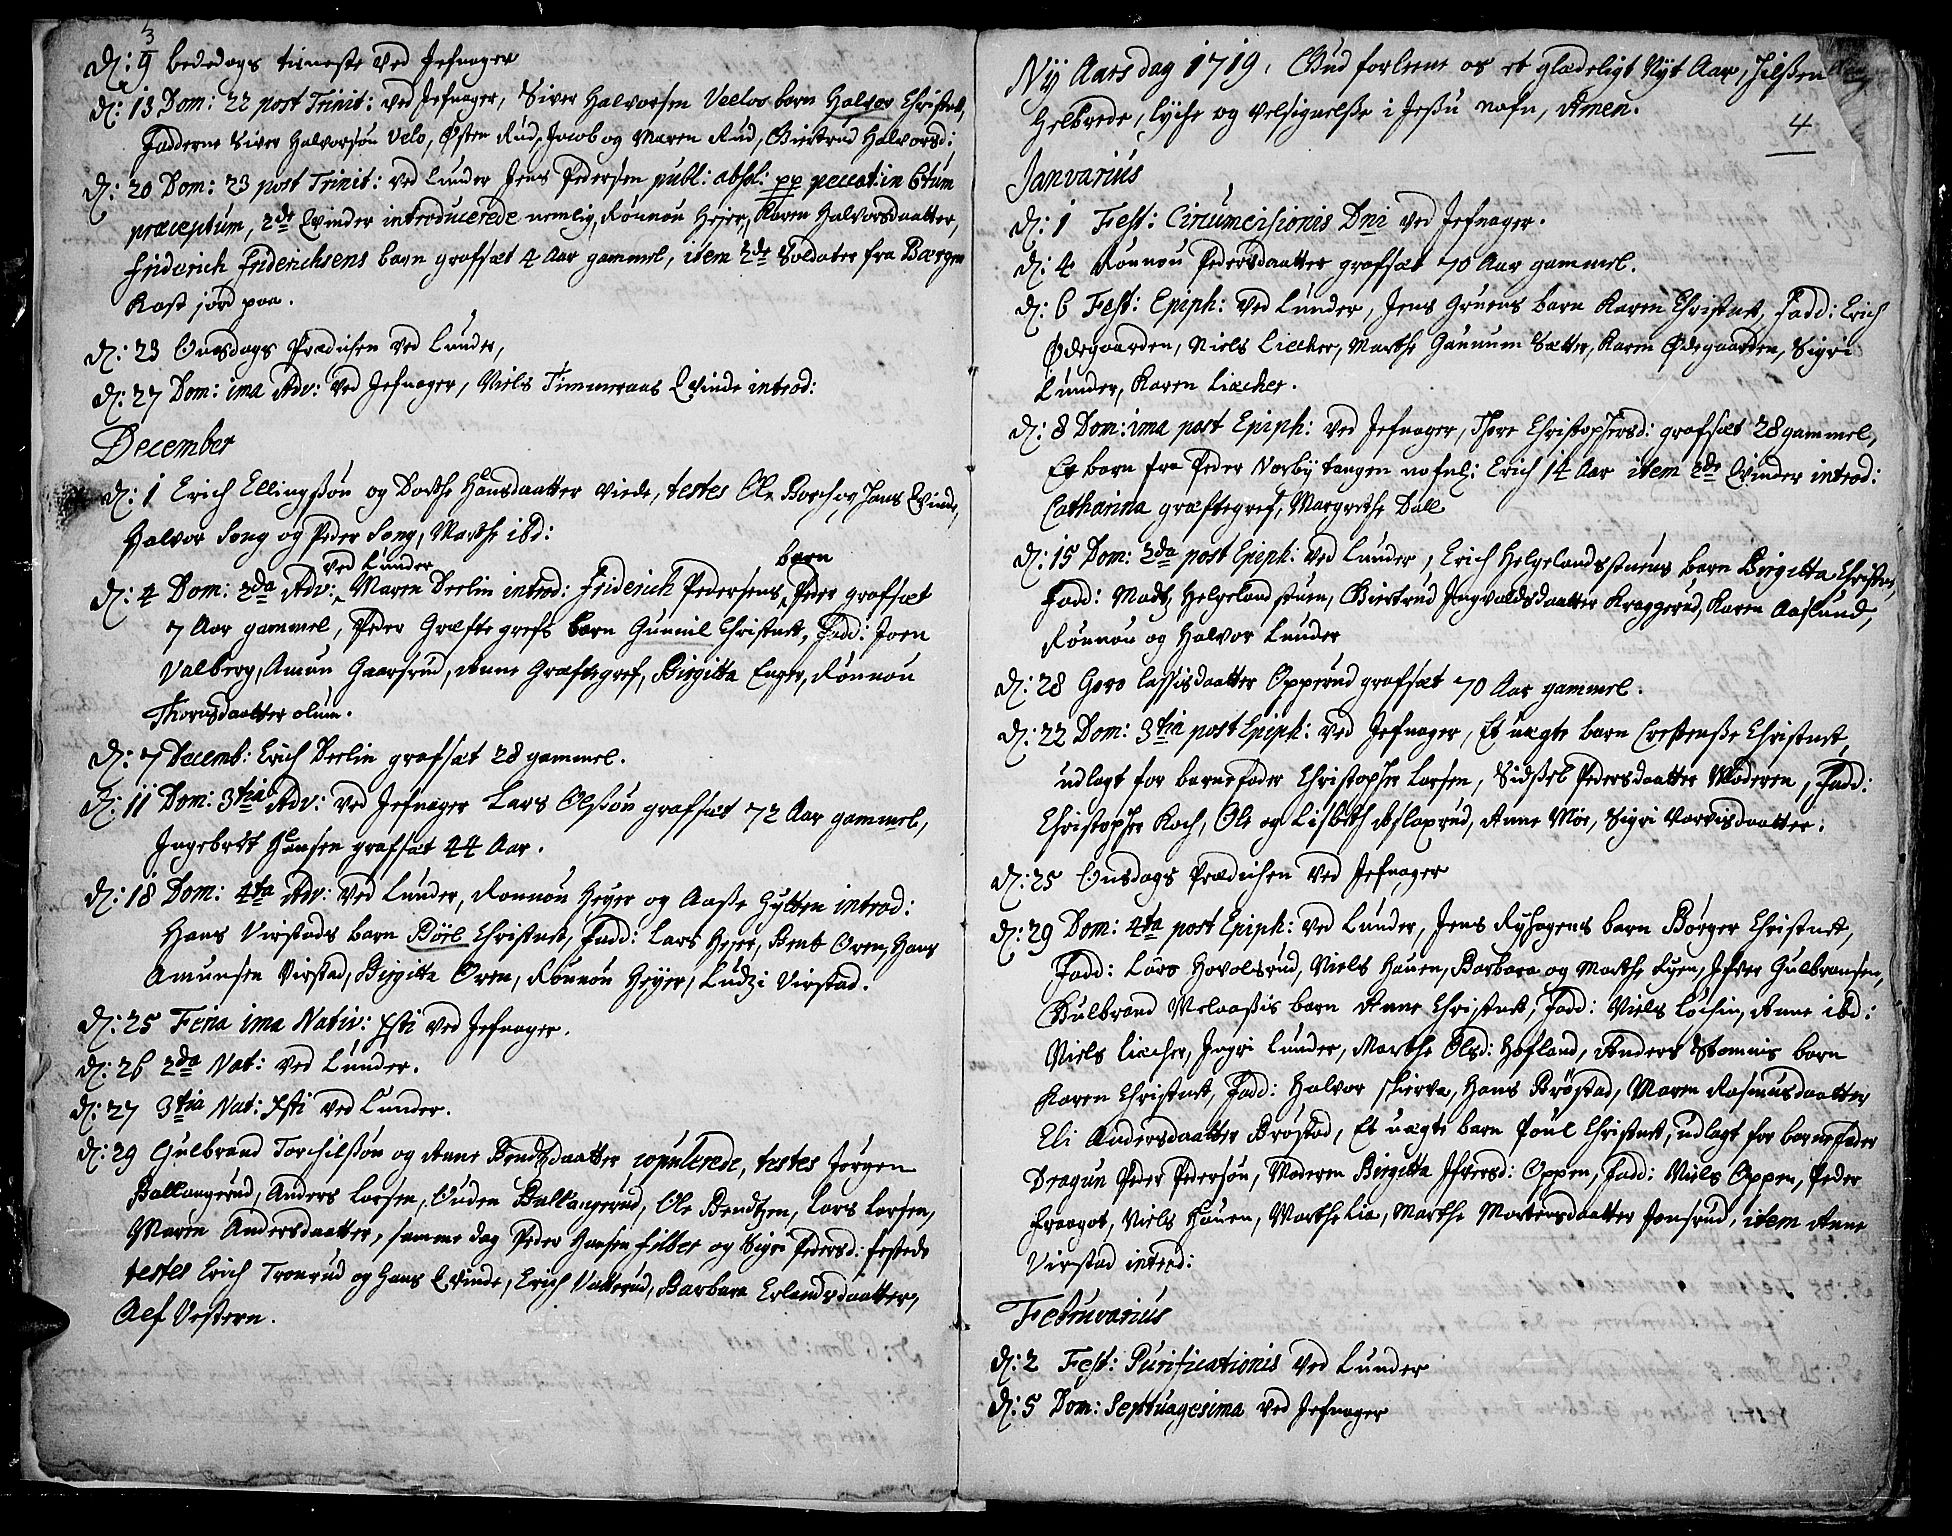 3
D: 9 bededags tieneste ved Jefnager
D: 13 Dom: 22 post Trinit: ved Jefnager, Siver Halvorsen Veeloes barn Halvor Christnet,
Fadderne Siver Halvorsøn Velo, Østen Rud, Jacob og Maren Rud, Giertrud Halvorsd:
D: 20 Dom: 23 post Trinit: ved Lunder Jens Pedersen publ: absol: pp peccat: in 6tum
præceptum, 2de Qvinder introducerede nemlig, Rønnou Heier, Karen Halvorsdaatter,
Friderich Friderichsens barn grafsæt 4 Aar gammel, item 2de Soldater fra Bergen
Kast jord paa.
D: 23 Onsdags Prædichen ved Lunder,
D: 27 Dom: 1ma Adv: ved Jefnager, Niels Timmeraas Qvinde introd:
December
D: 1 Erich Ellingssøn og Dorthe Hansdaatter viede, testes Ole Borch og Hans Qvinde,
Halvor Song og Peder Song, Marthe ibd:
ved Lunder barn
D: 4 Dom: 2da Adv: Maren Deelin introd: Friderich Pedersens Peder grafsæt
7 Aar gammel, Peder Græfte grefs barn Gunnil Christnet, Fadd: Joen
Valberg, Amun Gaarsrud, Anne Græftegref, Birgitta Enger, Rønnou
Thorsdaatter olum.
D: 7 Decemb: Erich Deelin grafsæt 28 gammel.
D: 11 Dom: 3tia Adv: ved Jefnager Lars Olssøn grafsæt 72 Aar gammel,
Ingebret Hansen grafsæt 44 Aar.
D: 18 Dom: 4ta Adv: ved Lunder, Rønnou Heyer og Aasse Hytten introd:
Hans Virstads barn Børl Christnet, Fadd: Lars Heier, Bent Oren, Hans
Amunsen Virstad, Birgitta Oren, Rønnou Heyer, Ludzi Virstad.
D: 25 Feria 1ma Nativ: Xsti ved Jefnager.
D: 26 2da Nat: ved Lunder.
D: 27 3tia Nat: Xsti ved Lunder.
D: 29 Gulbrand Torchilssøn og Anne Bendtzdaatter copulerede, testes Jørgen
Ballangrud, Anders Larsen, Ouden Ballangrud, Ole Bendtzen, Lars Larsen,
Maren Andersdaatter, samme dag Peder Hansen Filber og Sigri Pedersd: festede
testes Erich Tronrud og Hans Qvinde, Erich Vatterud, Barbara Erlandsdaatter,
Alf Vestern.
Ny Aars dag 1719. Gud forleene os et glædeligt Nyt Aar,
Helbrede, Lyche og Velsignelsse i Jessu nafn, Amen.
4
Janvarius
D: 1 Fest: Circumcisionis Dni ved Jefnager.
D: 4 Rønnou Pedersdaatter grafsæt 70 Aar gammel.
D: 6 Fest: Epiph: ved Lunder, Jens Gruens barn Karen Christnet, Fadd: Erich
Ødegaarden, Niels Liecher, Marthe Gunnum Sætter, Karen Ødegaarden, Sigri
Lunder, Karen Liecher.
D: 8 Dom: 1ma post Epiph: ved Jefnager, Thore Christophersd: grafsæt 28 gammel,
Et barn fra Peder Norbÿ tangen nafnl: Erich 14 Aar item 2de Qvinder introd:
Catharina græftegref, Margrethe Dall
D: 15 Dom: 2da post Epiph: ved Lunder, Erich Helgelandsstuens barn Birgitta Christnet,
Fadd: Mads Helgeland stuen, Giertrud Ingvaldsdaatter Kraggerud, Karen Aaslund,
Rønnou og Halvor Lunder
D: 28 Goro Lassisdaatter Opperud grafsæt 70 Aar gammel.
D: 22 Dom: 3tia post Epiph: ved Jefnager, Et uægte barn Crestensse Christnet
udlagt for barnefader Christopher Larsen, Sidssel Pedersdaatter Moderen, Fadd:
Christopher Koch, Ole og Lisbeth Aslaxrud, Anne Moe, Sigri Narvisdaatter.
D: 25 Onsdags Prædichen ved Jefnager
D: 29 Dom: 4ta post Epiph: ved Lunder, Jens Ryhagens barn Børger Christnet,
Fadd: Lars Hovolsrud, Niels Hauen, Barbara og Marthe Ryen, Ifver Gulbransen,
Gulbrand Melaassis barn Anne Christnet, Fadd: Niels Løchin, Anne ibd:
Niels Liecher, Ingri Lunder, Marthe Olsd: Hofland, Anders Stomnis barn
Karen Christnet, Fadd: Halvor Skierva, Hans Brøstad, Maren Rasmusdaatter
Eli Andersdaatter Brøstad, Et uægte barn Poul Christnet, udlagt for barnefader
Dragun Peder Pedersøn, Moderen Birgitta Ifversd: Oppen, Fadd: Niels Oppen, Peder
Fraagot, Niels Hauen, Marthe Lia, Marthe Mortensdaatter Jonsrud, item Anne
Virstad introd:
Februvarius
D: 2 Fest: Purificationis ved Lunder
D: 5 Dom: Septuagesima ved Jefnager